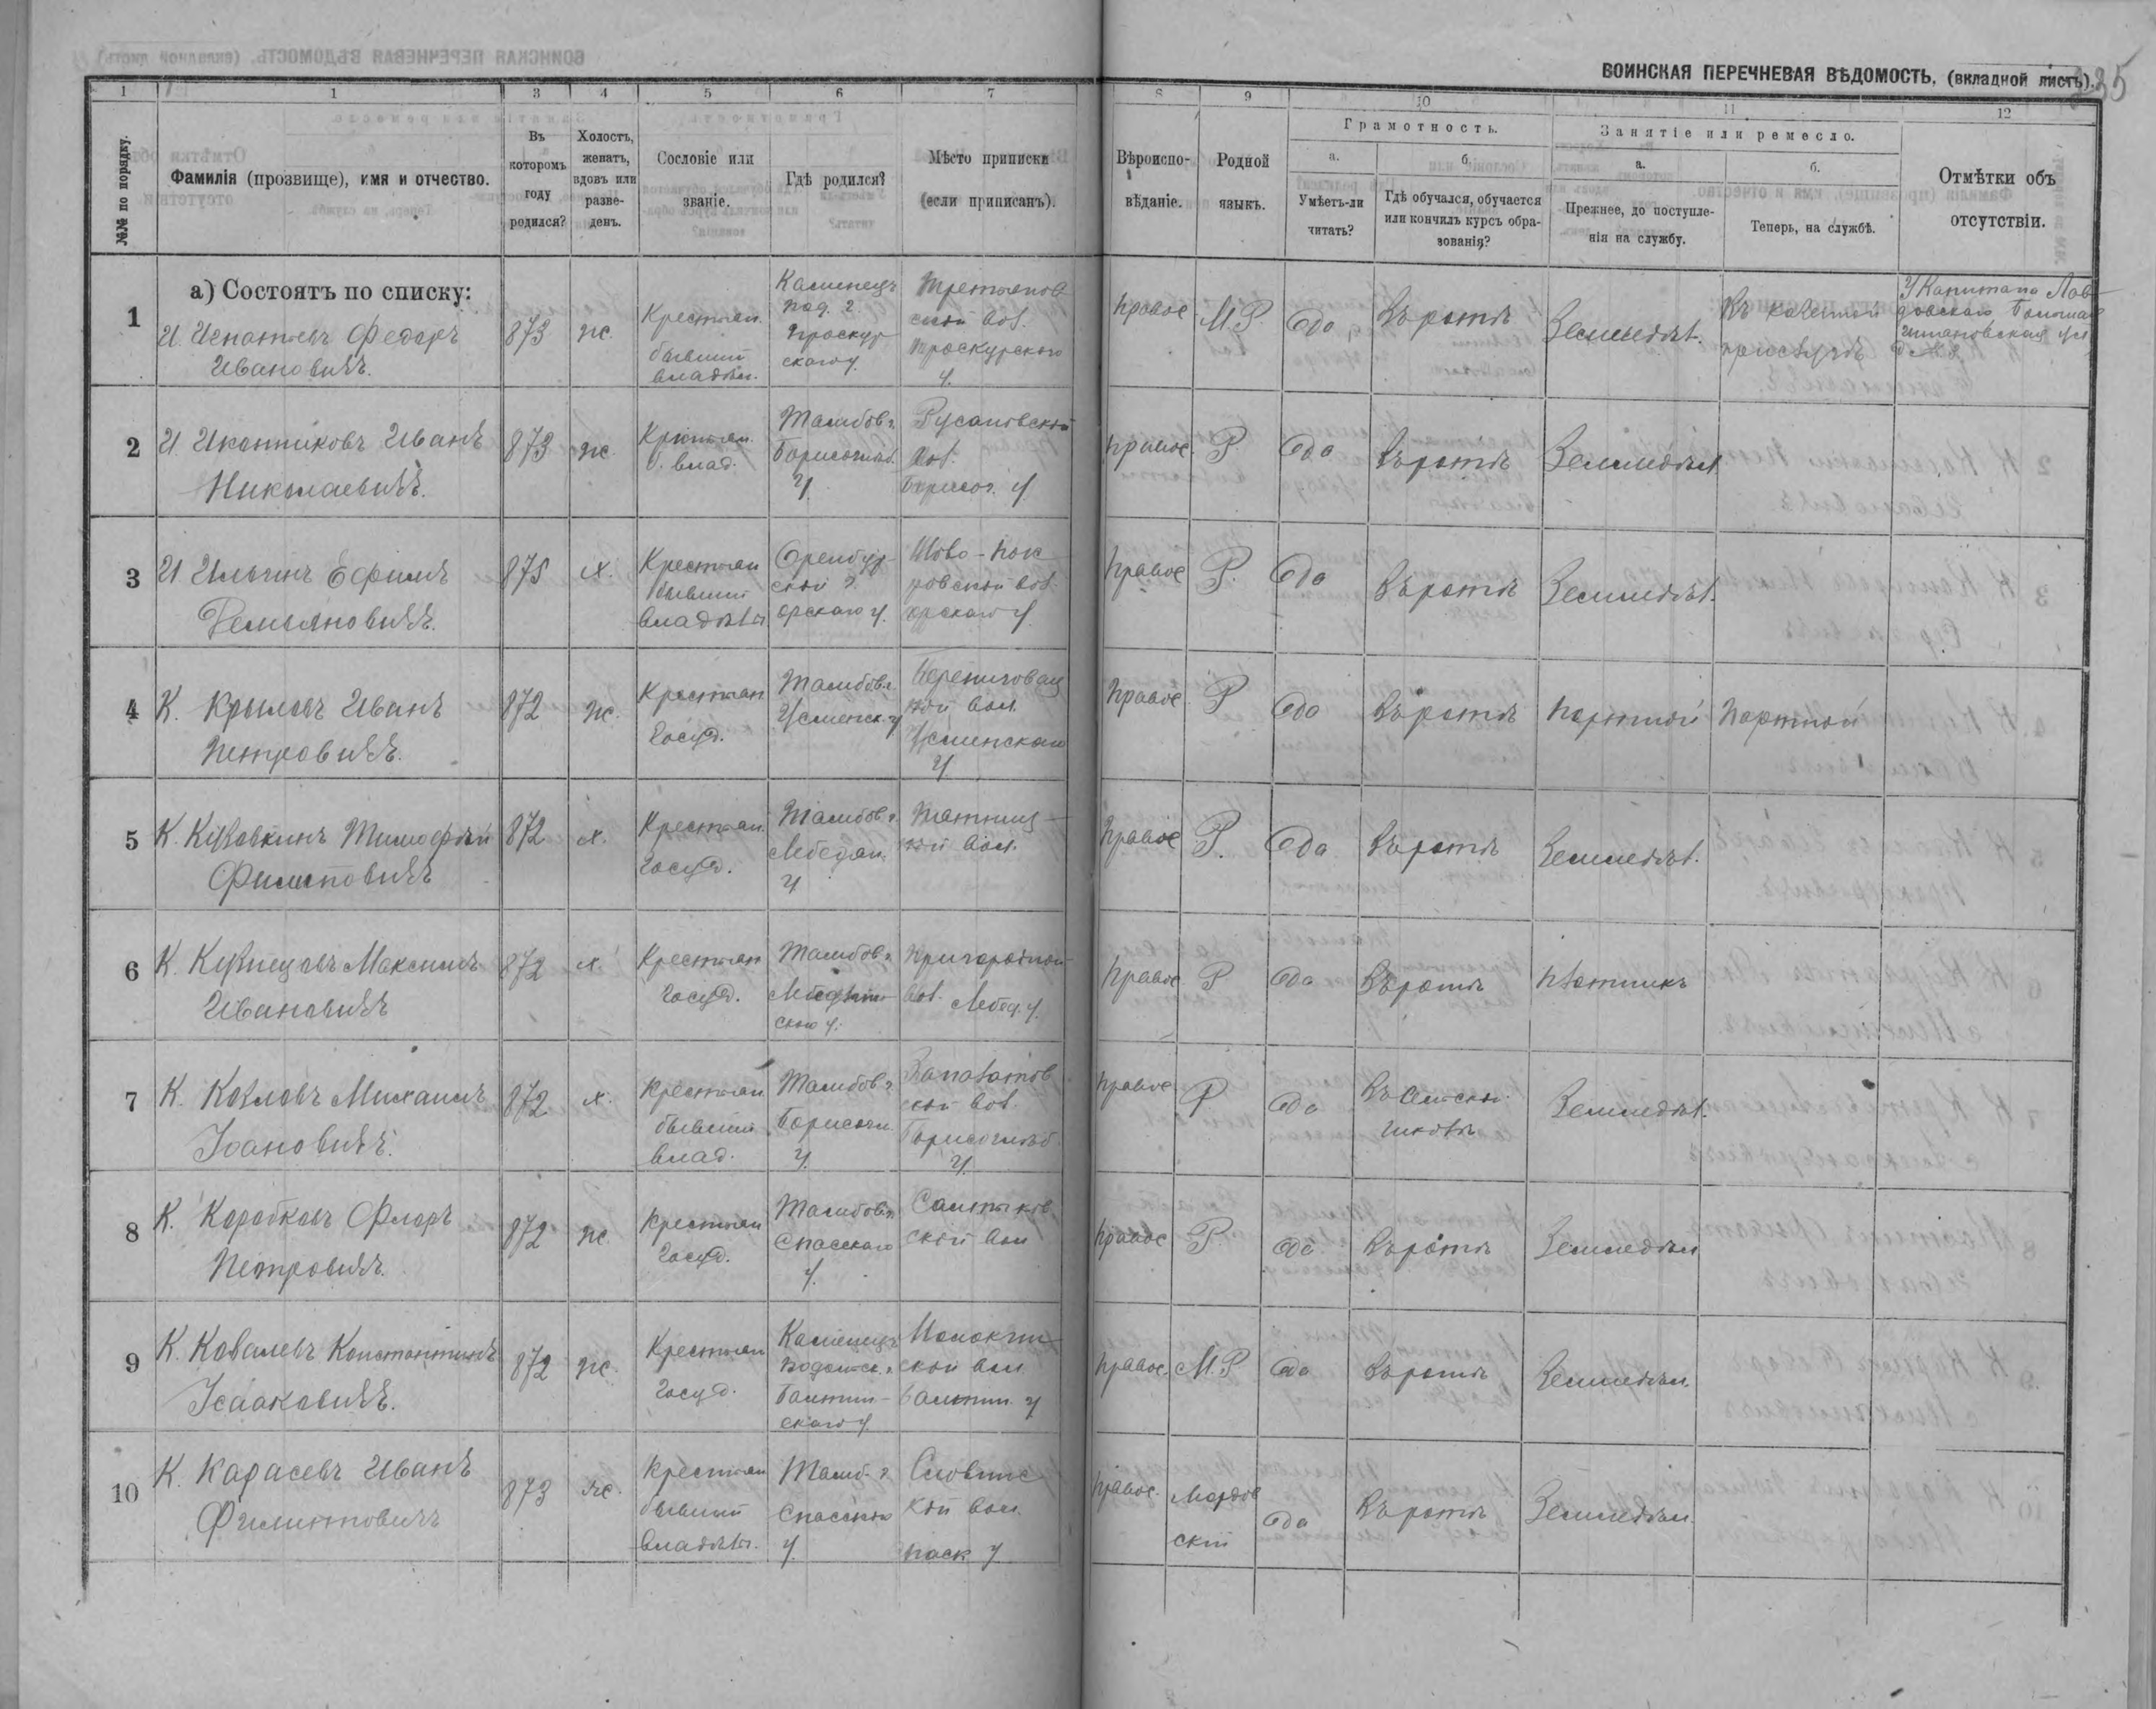 ВОИНСКАЯ ПЕРЕЧНЕВАЯ ВѢДОМОСТЬ, (вкладной листъ).
1 1 3 4 5 6 7 8 9 10 11 12
№№ по порядку.
Фамилія (прозвище), имя и отчество.
Въ которомъ году родился?
Холостъ, женатъ, вдовъ или разведенъ.
Сословіе или званіе.
Гдѣ родился?
Мѣсто приписки (если приписанъ).
Вѣроисповѣданіе.
Родной языкъ.
Грамотность.
а. Умѣетъ-ли читать?
б. Гдѣ обучался, обучается или кончилъ курсъ образованія?
Занятіе или ремесло.
а. Прежнее, до поступленія на службу.
б. Теперь, на службѣ.
Отмѣтки объ отсутствіи.
а) Состоятъ по списку:
1 И. Игнатьевъ Федоръ Ивановичъ. 873 ж. Крестьян. бывший владѣл. Каменецъ под. г. Проскурскаго у. вол. Проскурскаго у. Правос М.Р. Да Въ ротѣ Земледѣл. Въ прислугѣ У Капитана
2 И Икон­никовъ Иванъ Николаевичъ. 873 ж. Крестьян. б. влад. Тамбов г. Борисоглѣб. у. Русановской вол. Борисог. у. Правос Р. Да Въ ротѣ Земледѣл
3 И Ильинъ Ефимъ Демьяновичъ. 875 х. Крестьян бывший владѣл Оренбургской г. Орскаго у. Ново-Покровской вол. Орскаго у. Правос Р. Да Въ ротѣ Земледѣл.
4 К. Крыловъ Иванъ Петровичъ. 872 ж. Крестьян Госуд. Тамбов г. Усманск. у вол. Усманскаго у. Правос Р Да Въ ротѣ Портной Портной
5 К. Тимофѣй Филиповичъ 872 х. Крестьян. Госуд. Тамбов г. Лебедян. у вол. Правос Р. Да Въ ротѣ Земледѣл.
6 К. Кузнецовъ Максимъ Ивановичъ 872 х. Крестьян Госуд. Тамбов г. Лебедянскаго у. Пригородной вол. Лебед. у. Правос Р Да Въ ротѣ Плотникъ
7 К. Козловъ Михаилъ Іоановичъ. 872 х. Крестьян бывший влад. Тамбов г. Борисогл у. вол. Борисоглѣб у. Правос Р. Да Въ сельской школѣ Земледѣл.
8 К. Коробковъ Флоръ Петровичъ. 872 ж. Крестьян Госуд. Тамбов г. Спасскаго у. Салтыковской вол Правос Р. Да Въ ротѣ Земледѣл
9 К. Ковалевъ Константинъ Ісааковичъ. 872 ж. Крестьян Госуд. Каменецъ Подольск. г. Балтинскаго у. вол. Балтин. у Правос. М.Р Да Въ ротѣ Земледѣл.
10 К. Карасевъ Иванъ Филиповичъ 873 ж. Крестьян бывший владѣл. Тамб. г. Спасскаго у. вол. Правос. Мордовский Да Въ ротѣ Земледѣл.